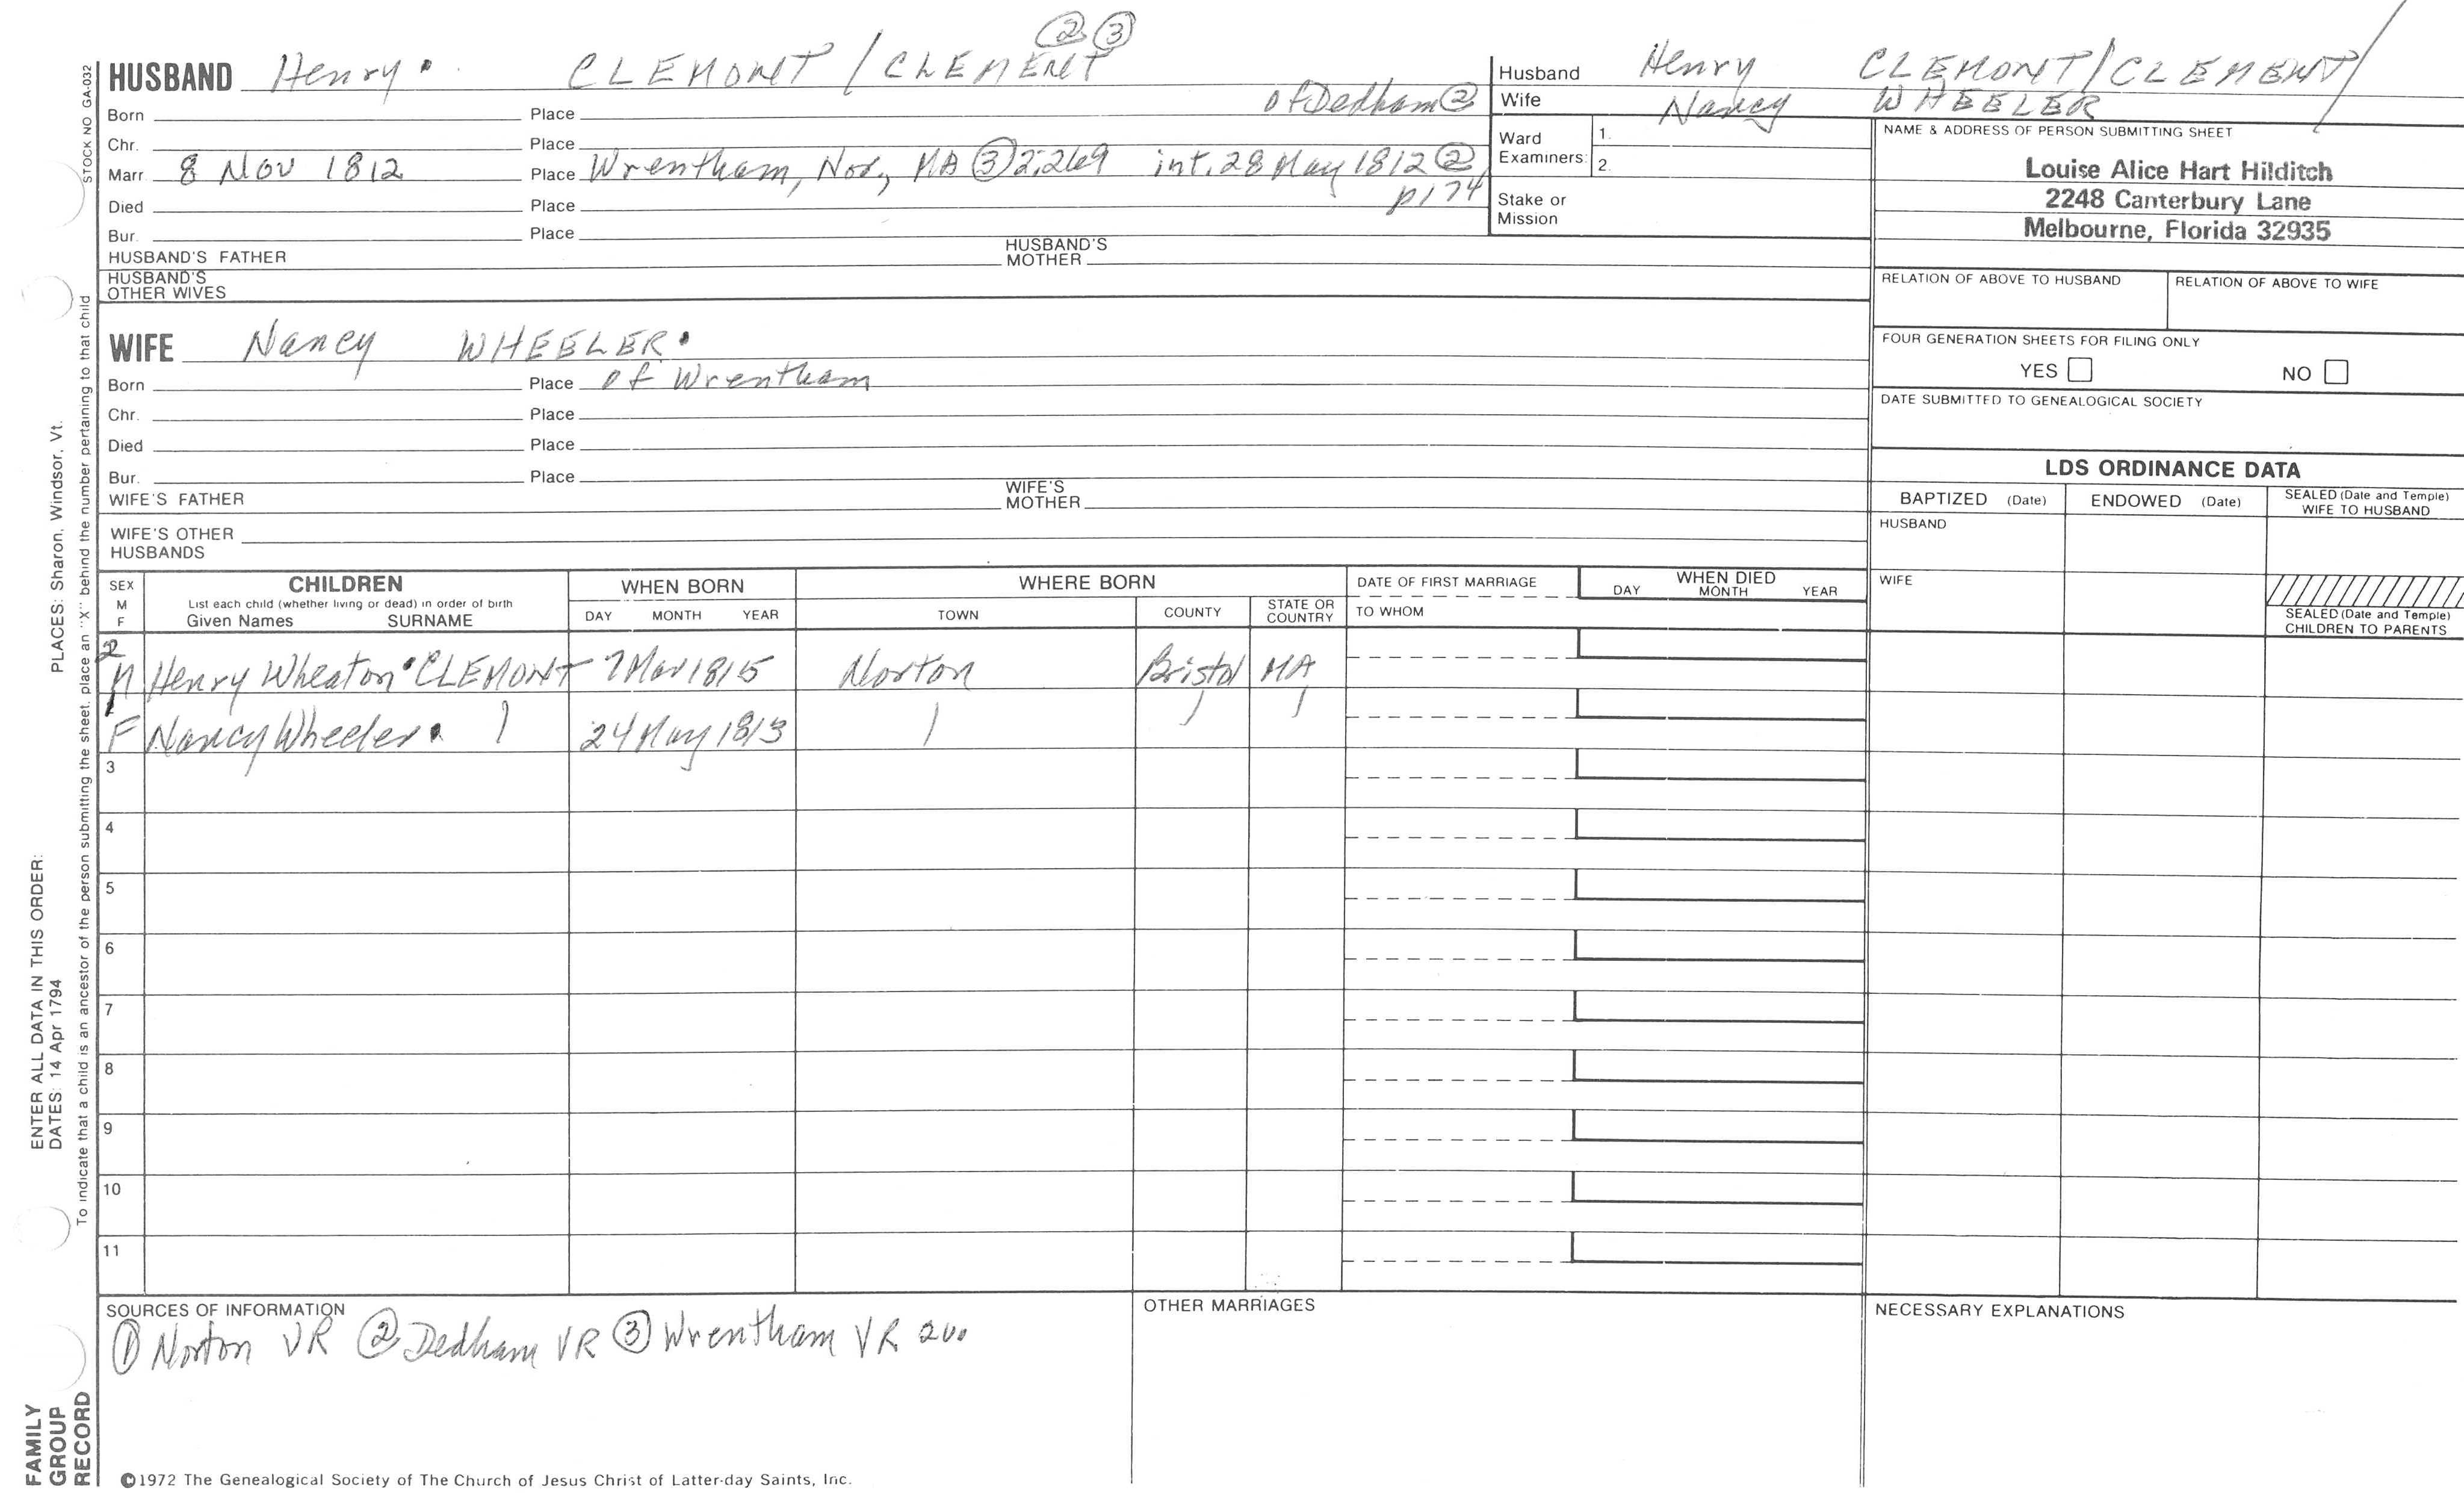 ② ③
HUSBAND Henry CLEMONT / CLEMENT
of Dedham ②
Born Place
Chr. Place
Marr. 8 Nov 1812 Place Wrentham, Nor, MA ③ 2:269 int. 28 May 1812 ②
p174
Died Place
Bur. Place
HUSBAND'S FATHER HUSBAND'S MOTHER
HUSBAND'S
OTHER WIVES
WIFE Nancy WHEELER
Born Place of Wrentham
Chr. Place
Died Place
Bur. Place
WIFE'S FATHER WIFE'S MOTHER
WIFE'S OTHER
HUSBANDS
Husband Henry CLEMONT/CLEMENT
Wife Nancy WHEELER
Ward
Examiners:
1.
2.
Stake or
Mission
NAME & ADDRESS OF PERSON SUBMITTING SHEET
Louise Alice Hart Hilditch
2248 Canterbury Lane
Melbourne, Florida 32935
RELATION OF ABOVE TO HUSBAND RELATION OF ABOVE TO WIFE
FOUR GENERATION SHEETS FOR FILING ONLY
YES NO
DATE SUBMITTED TO GENEALOGICAL SOCIETY
LDS ORDINANCE DATA
BAPTIZED (Date) ENDOWED (Date) SEALED (Date and Temple)
WIFE TO HUSBAND
HUSBAND
WIFE
SEALED (Date and Temple)
CHILDREN TO PARENTS
SEX
M
F
CHILDREN
List each child (whether living or dead) in order of birth
Given Names SURNAME
WHEN BORN
DAY MONTH YEAR
WHERE BORN
TOWN COUNTY STATE OR COUNTRY
DATE OF FIRST MARRIAGE
TO WHOM
WHEN DIED
DAY MONTH YEAR
2
M Henry Wheaton CLEMONT 7 Mar 1815 Norton Bristol MA
1
F Nancy Wheeler 24 May 1813
3
4
5
6
7
8
9
10
11
SOURCES OF INFORMATION
① Norton VR ② Dedham VR ③ Wrentham VR
OTHER MARRIAGES
NECESSARY EXPLANATIONS
©1972 The Genealogical Society of The Church of Jesus Christ of Latter-day Saints, Inc.
STOCK NO GA-032
To indicate that a child is an ancestor of the person submitting the sheet, place an "X" behind the number pertaining to that child
ENTER ALL DATA IN THIS ORDER:
DATES: 14 Apr 1794 PLACES: Sharon, Windsor, Vt.
FAMILY
GROUP
RECORD